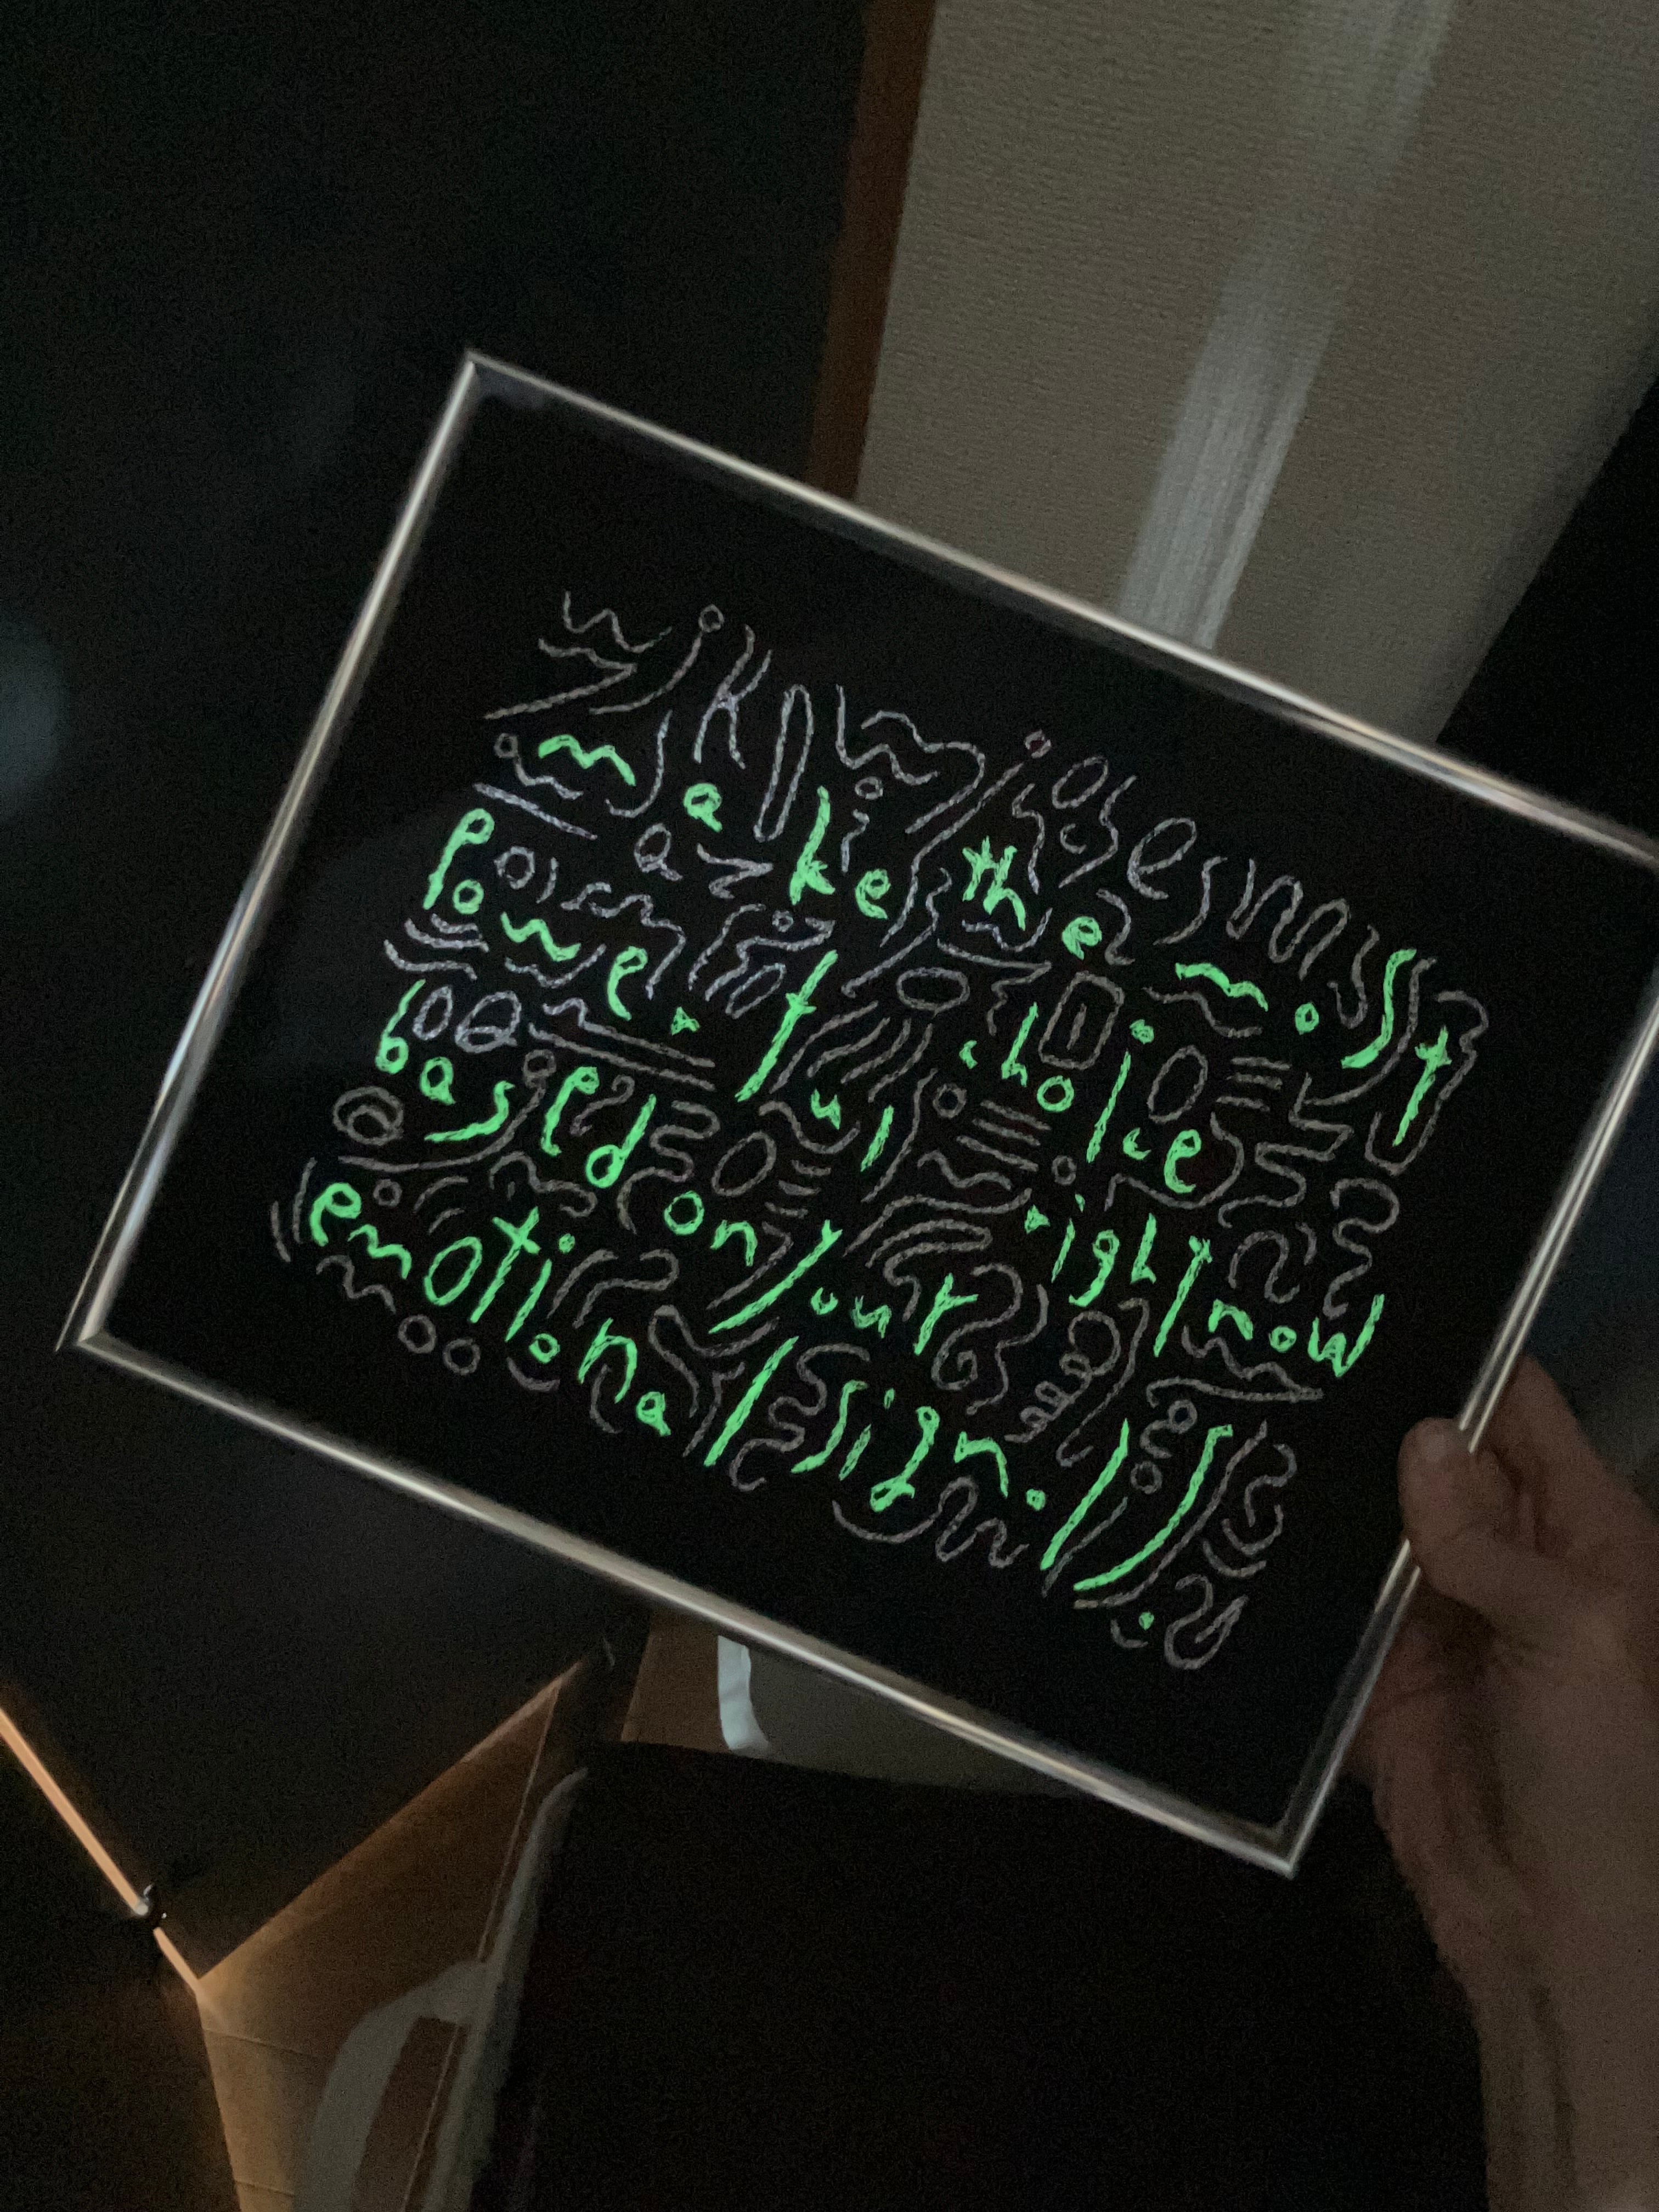 make the most
powerful choice
based on your right now
emotional sign.